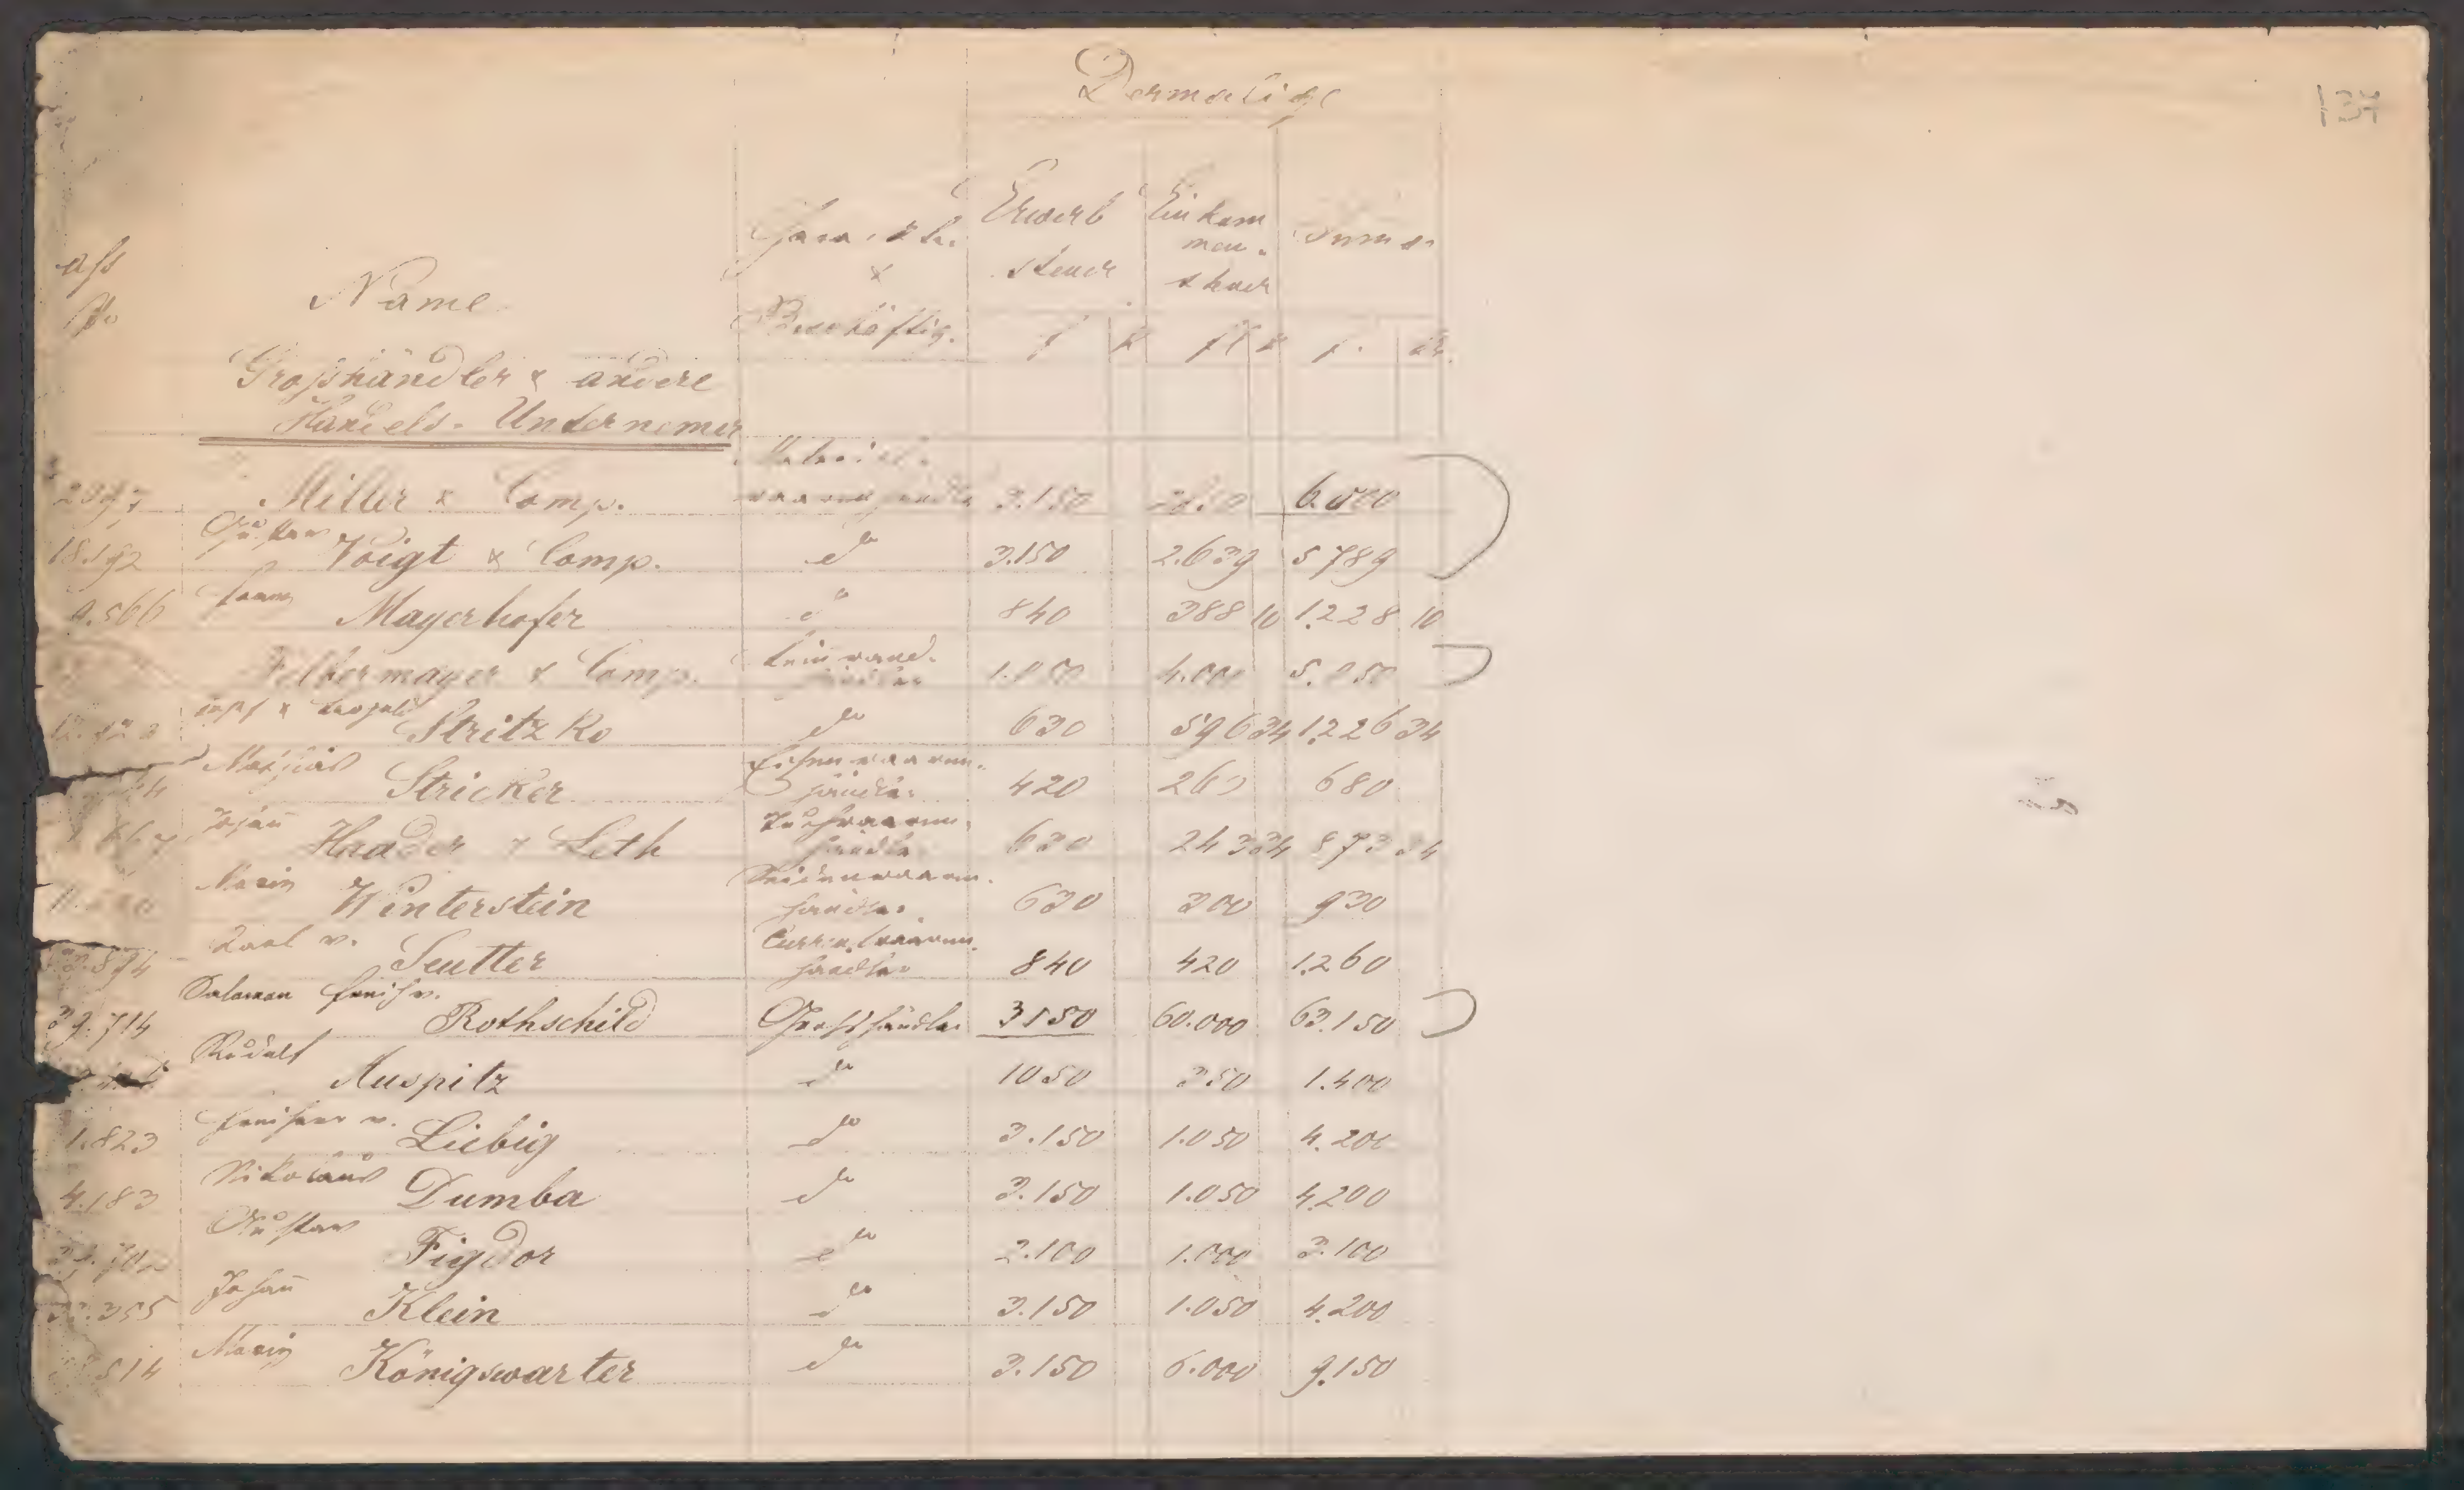 Dermalige
137
ass
No
Name
Charakter
&
Beschäftig.
Erwerb
steuer
Einkom
men-
steuer
Summe
f k fl k f. kr.
Großhändler & andere
Handels-Unternemer
Material-
Miller & Comp. waarenhändler 3.150 6.000
18.192 Gustav Voigt & Comp. do 3.150 2.639 5789
9.566 Franz Mayerhofer do 840 388 10 1.228 10
Felbermayer & Comp. Leinwand-händler 1.050 4.000 5.050
Josef & Leopold Stritzko do 630 596 34 1.226 34
Mathias Stricker Eisenwaaren-händler 420 260 680
Johann Haader & Leth Tuchwaaren-händler 630 243 34 873 34
Moriz Winterstein Seidenwaaren-händler 630 300 930
Karl v. Seutter Currentwaaren-händler 840 420 1.260
39.714 Salomon Freih v. Rothschild Grosshändler 3150 60.000 63.150
Rudolf Auspitz do 1050 350 1.400
1.823 Freiherr v. Liebig do 3.150 1.050 4.200
4.183 Nikolaus Dumba do 3.150 1.050 4.200
Gustav Figdor do 2.100 1.000 3.100
355 Johann Klein do 3.150 1.050 4.200
514 Moriz Königswarter do 3.150 6.000 9.150